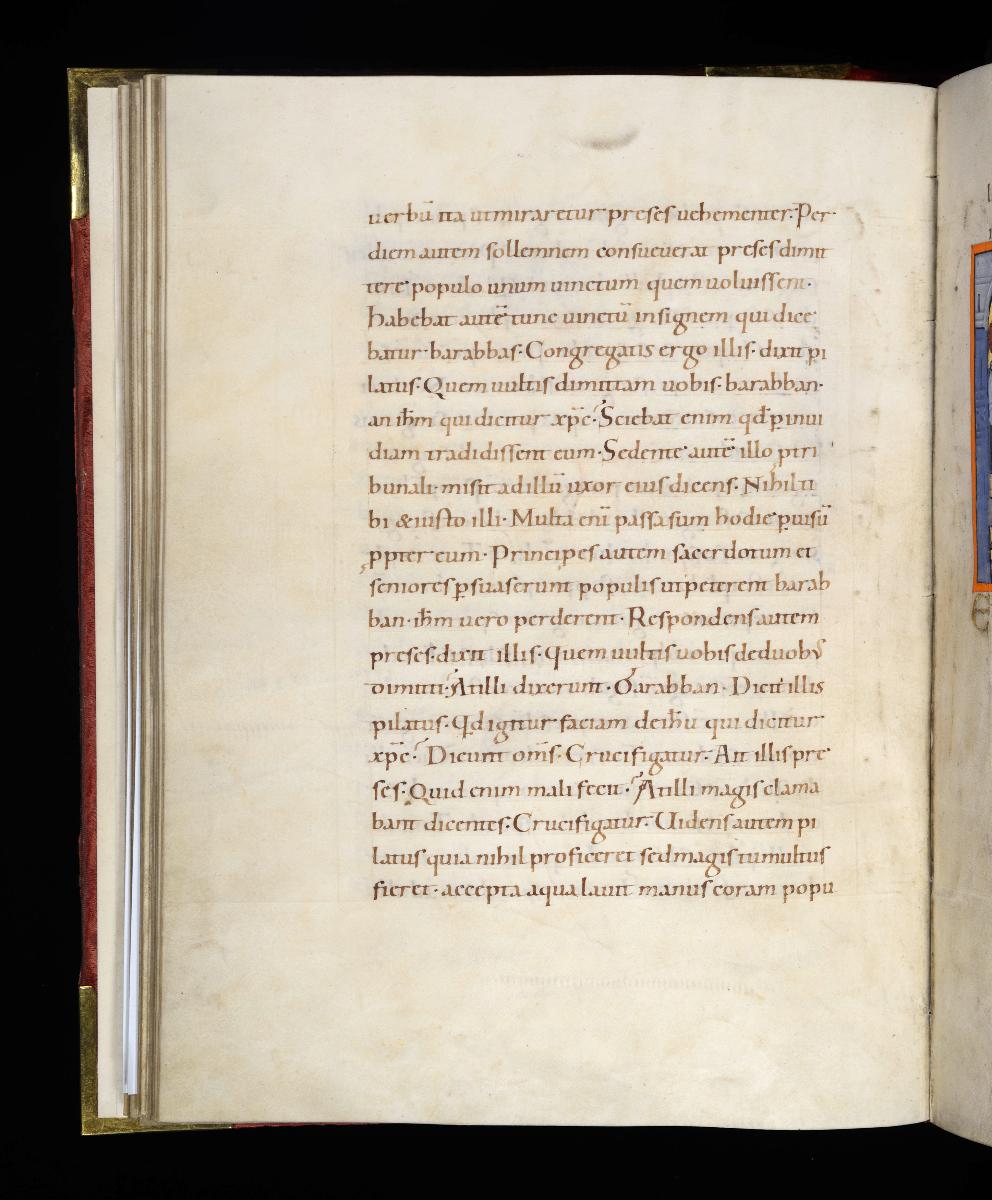 uerbū ita utmiraretur preses uehementer. Per
diem autem sollemnem consueuerat preses dimit
tere populo unum uinctum quem uoluissent.
habebat autē tunc uinctū insignem qui dice
batur barabbas. Congregatis ergo illis. dixit pi
latus. Quem uultis dimittam uobis. barabban.
an ihm̄ qui dicitur xpc̄. Sciebat enim qđ ꝑ inui
diam tradidissent eum. Sedente autē illo ꝓ tri
bunali. misit ad illū uxor eius dicens. Nihil ti
bi & iusto illi. Multa enī passa sum hodie ꝑ uisū
ꝓpter eum. Principes autem sacerdotum et
seniores ꝑsuaserunt populis ut peterent barab
ban. ihm̄ uero perderent. Respondens autem
preses. dixit illis. Quem uultis uobis de duobꝰ
dimitti. At illi dixerunt. Barabban. Dicit illis
pilatus. Qđ igitur faciam de ihū qui dicitur
xpc̄. Dicunt om̄s. Crucifigatur. Ait illis pre
ses. Quid enim mali fecit. At illi magis clama
bant dicentes. Crucifigatur. Uidens autem pi
latus quia nihil proficeret sed magis tumultus
fieret. accepta aqua lauit manus coram popu